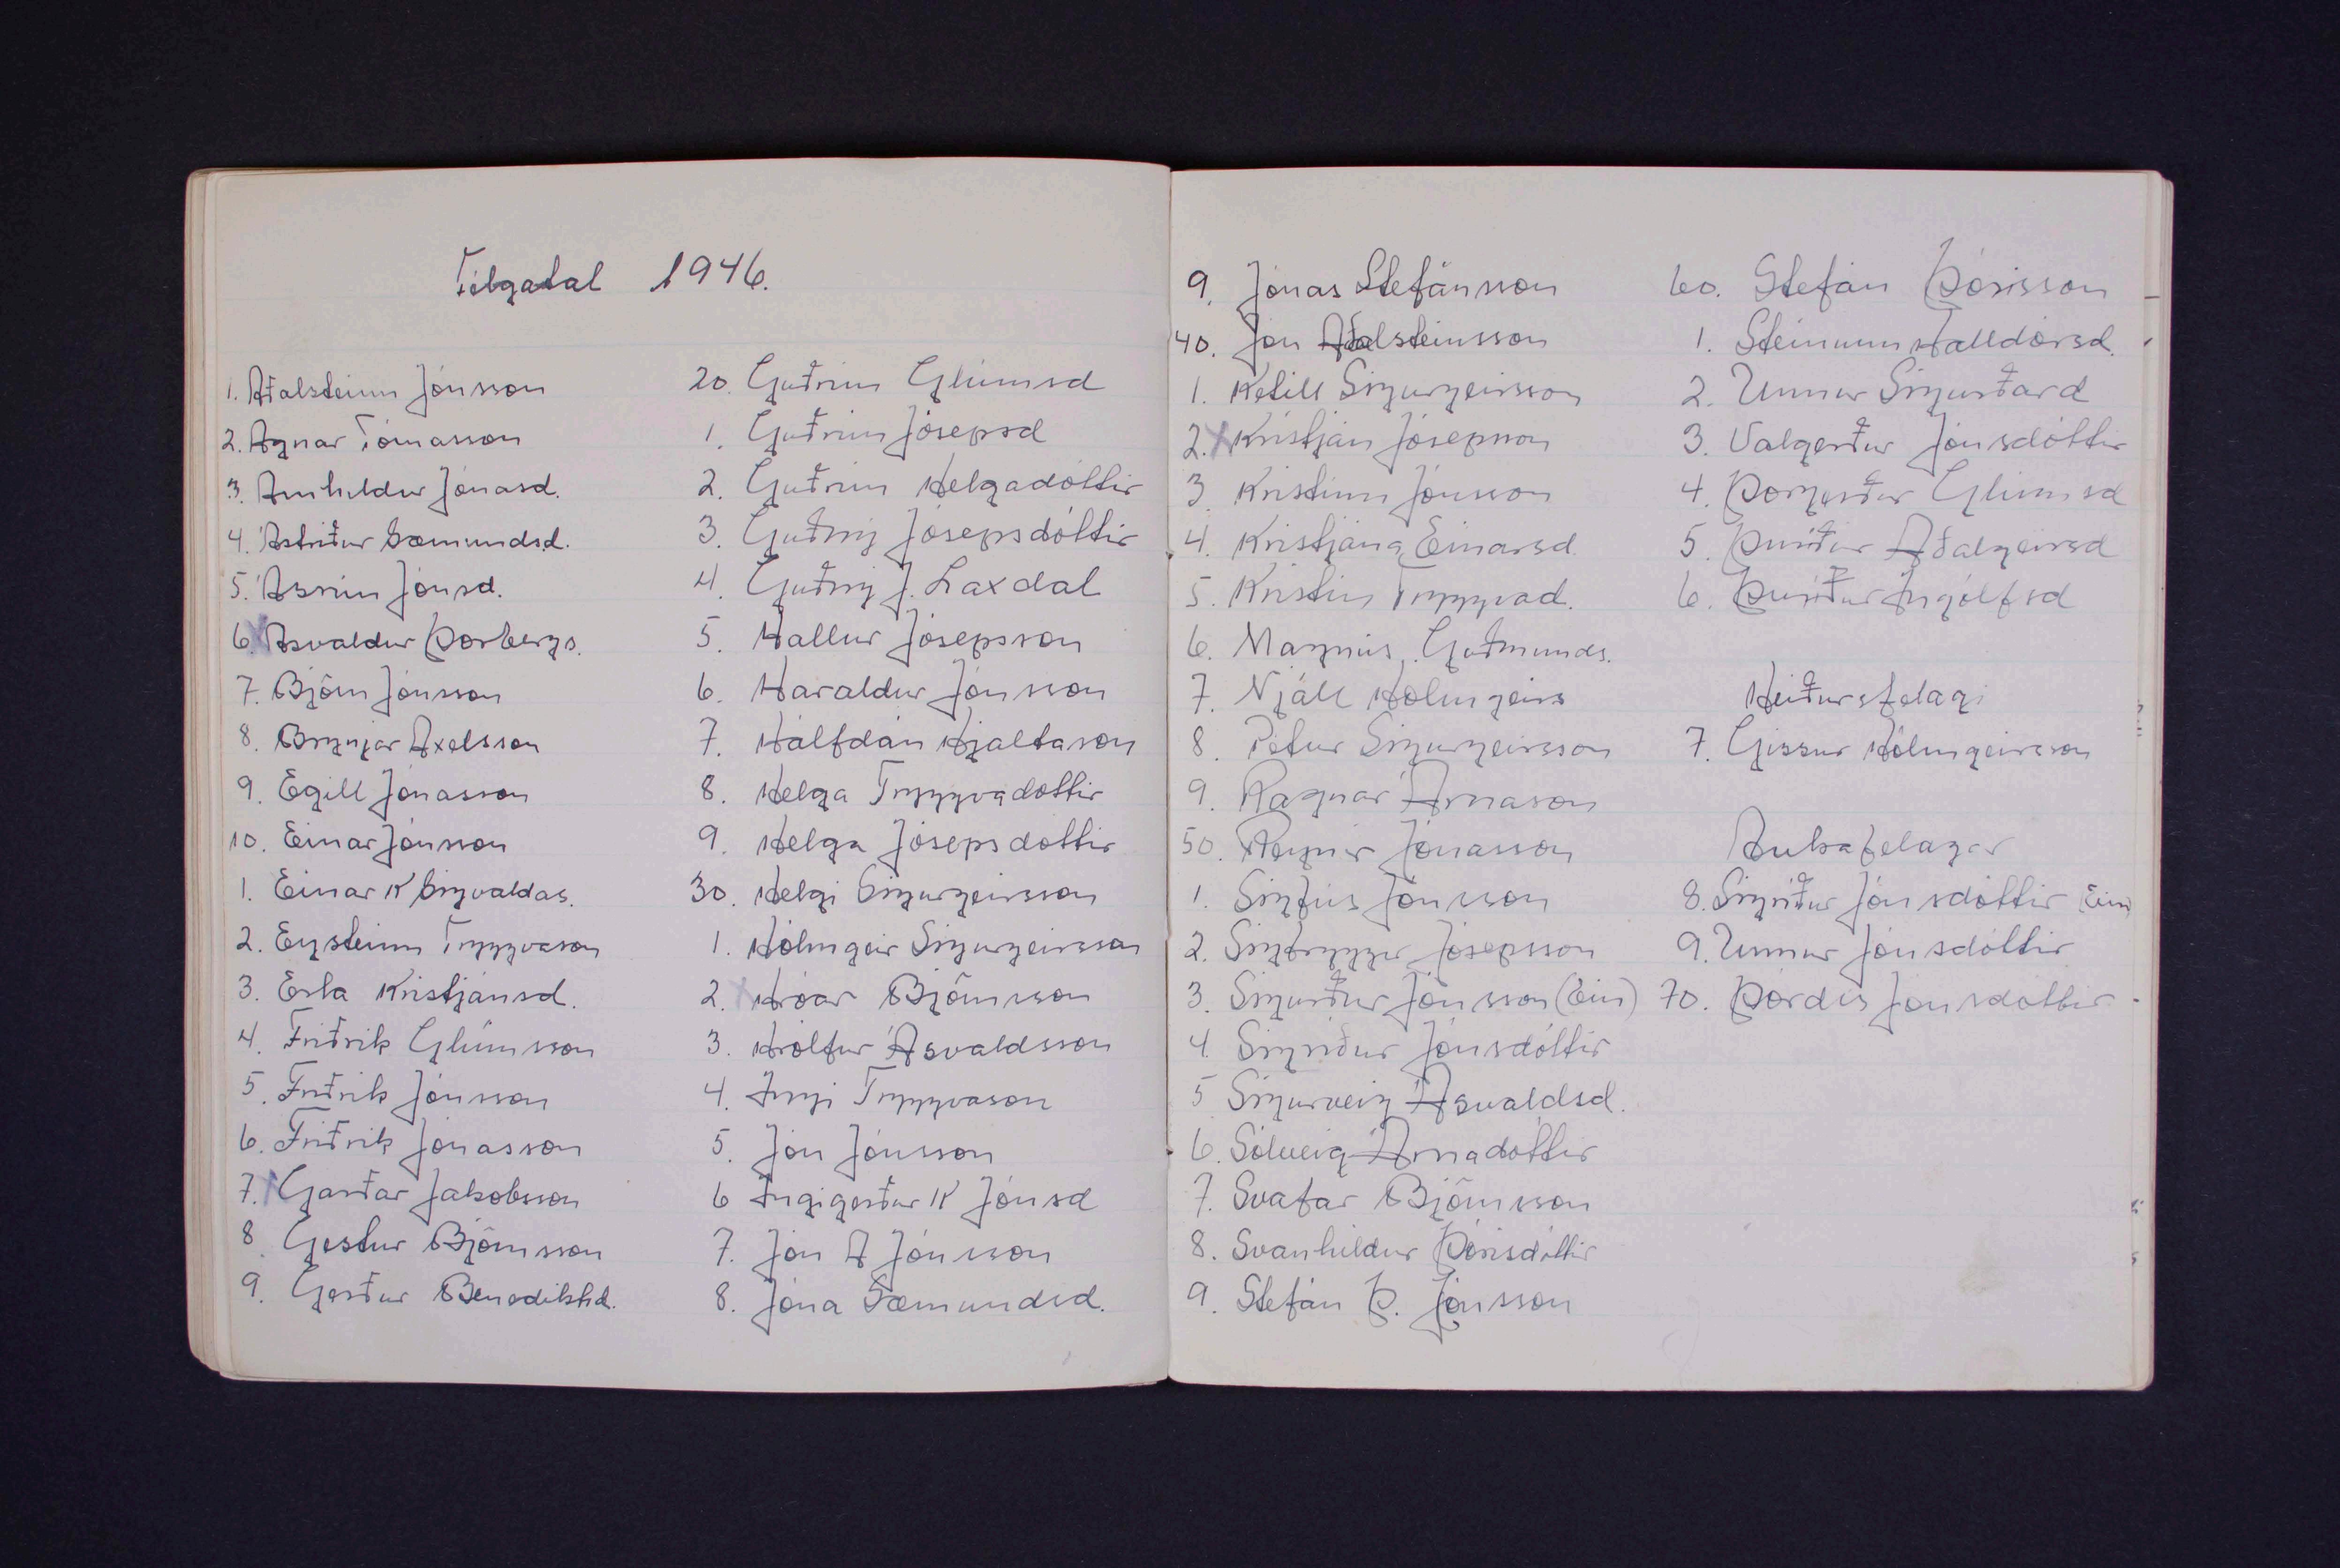 Félagatal 1946.
1. Aðalsteinn Jónsson
2. Agnar Tómasson
3. Arnhildur Jónasd.
4. Ástríður Sæmundsd.
5. Ásrún Jónsd.
6. Ásvaldur Þorbergs.
7. Björn Jónsson
8. Brynjar Axelsson
9. Egill Jónasson
10. Einar Jónsson
1. Einar K Sigvaldas.
2. Eysteinn Tryggvason
3. Erla Kristjánsd.
4. Friðrik Glúmsson
5. Friðrik Jónsson
6. Friðrik Jónasson
7. Garðar Jakobsson
8. Gestur Björnsson
9. Gerður Benediktsd.
20. Guðrún Glúmsd
1. Guðrún Jósepsd
2. Guðrún Helgadóttir
3. Guðný Jósepsdóttir
4. Guðný J. Laxdal
5. Hallur Jósepsson
6. Haraldur Jónsson
7. Hálfdán Hjaltason
8. Helga Tryggvadóttir
9. Helga Jósepsdóttir
30. Helgi Sigurgeirsson
1. Hólmgeir Sigurgeirsson
2. Hróar Björnsson
3. Hrólfur Ásvaldsson
4. Ingi Tryggvason
5. Jón Jónsson
6 Ingigerður K Jónsd
7. Jón A Jónsson
8. Jóna Sæmundsd.
9. Jónas Stefánsson
40. Jón Aðalsteinsson
1. Ketill Sigurgeirsson
2. Kristján Jósepsson
3. Kristinn Jónsson
4. Kristjana Einarsd.
5. Kristín Tryggvad.
6. Magnús Guðmunds.
7. Njáll Hólmgeirs
8. Pétur Sigurgeirsson
9. Ragnar Árnason
50. Reynir Jónasson
1. Sigfús Jónsson
2. Sigtryggur Jósepsson
3. Sigurður Jónsson (Ein)
4. Sigríður Jónsdóttir
5 Sigurveig Ásvaldsd.
6. Sólveig Árnadóttir
7. Svafar Björnsson
8. Svanhildur Þórisdóttir
9. Stefán Þ. Jónsson
60. Stefán Þórisson
1. Steinunn Halldórsd.
2. Unnur Sigurðard
3. Valgerður Jónsdóttir
4. Þorgerður Glúmsd
5. Þuríður Aðalgeirsd
6. Þuríður Ingólfsd
Heiðursfélagi
7. Gissur Hólmgeirsson
Aukafélagar
8. Sigríður Jónsdóttir (Ein)
9. Unnur Jónsdóttir
70. Þórdís Jónsdóttir